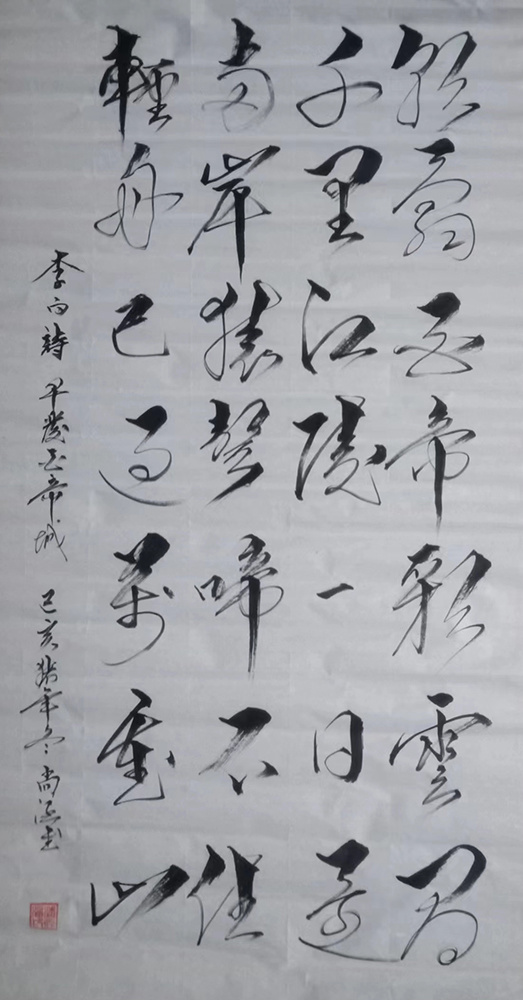 朝辭白帝彩雲間
千里江陵一日還
兩岸猿聲啼不住
輕舟已過萬重山
李白詩 早發白帝城 己亥豬年冬 尚 書